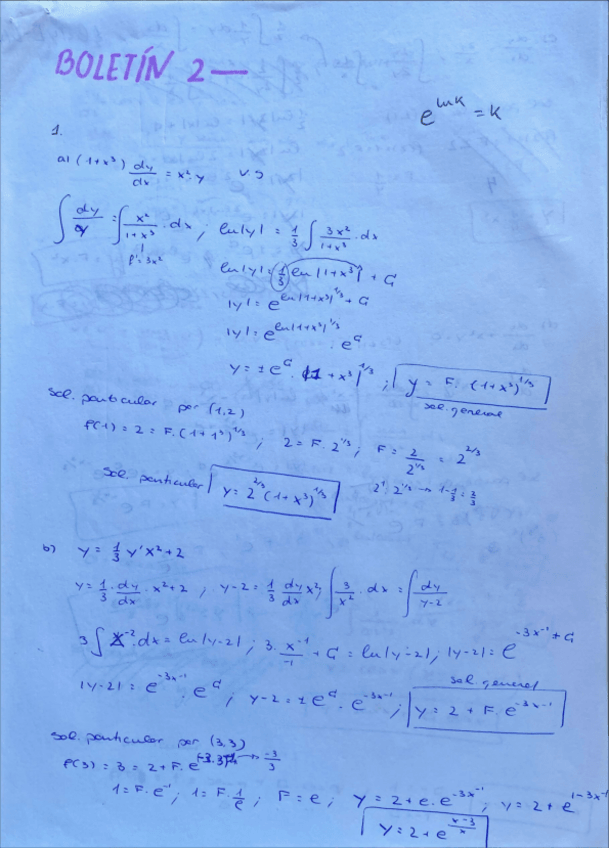 BOLETÍN 2 —
e^{ln K} = K
1.
a) (1+x³) dy/dx = x²·y VS
∫ dy/y = ∫ x²/(1+x³) · dx ; ln|y| = 1/3 ∫ 3x²/(1+x³) · dx
f' = 3x²
ln|y| = 1/3 ln|1+x³| + C
|y| = e^{ln|1+x³|^{1/3} + C}
|y| = e^{ln|1+x³|^{1/3}} · e^C
y = ± e^C · |1+x³|^{1/3} ; y = F · (1+x³)^{1/3}
sol. general
sol. particular por (1,2)
f(1) = 2 = F·(1+1³)^{1/3} ; 2 = F·2^{1/3} ; F = 2/2^{1/3} = 2^{2/3}
sol. particular y = 2^{2/3} (1+x³)^{1/3} 2¹: 2^{1/3} → 1-1/3 = 2/3
b) y = 1/3 y' x² + 2
y = 1/3 · dy/dx · x² + 2 , y-2 = 1/3 dy/dx x² ; ∫ 3/x² · dx = ∫ dy/(y-2)
3 ∫ x^{-2} · dx = ln|y-2| ; 3 · x^{-1}/-1 + C = ln|y-2| ; |y-2| = e^{-3x^{-1} + C}
sol. general
|y-2| = e^{-3x^{-1}} · e^C ; y-2 = ± e^C · e^{-3x^{-1}} ; y = 2 + F · e^{-3x^{-1}}
sol. particular por (3,3)
f(3) = 3 = 2 + F · e^{-3·3^{-1}} → -3/3
1 = F · e^{-1} ; 1 = F · 1/e ; F = e ; y = 2 + e · e^{-3x^{-1}} ; y = 2 + e^{1-3x^{-1}}
y = 2 + e^{(x-3)/x}